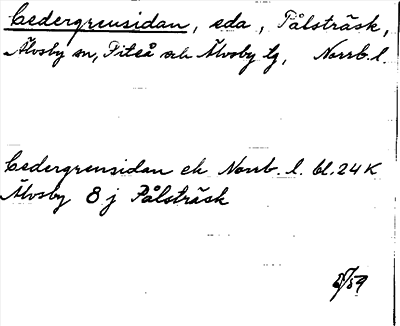 Cedergrensidan, eda, Pålsträsk,
Älvsby sn, Piteå och Älvsby tg, Norrb. l.
Cedergrensidan ek Norrb. l. bl. 24 K
Älvsby 8 j Pålsträsk